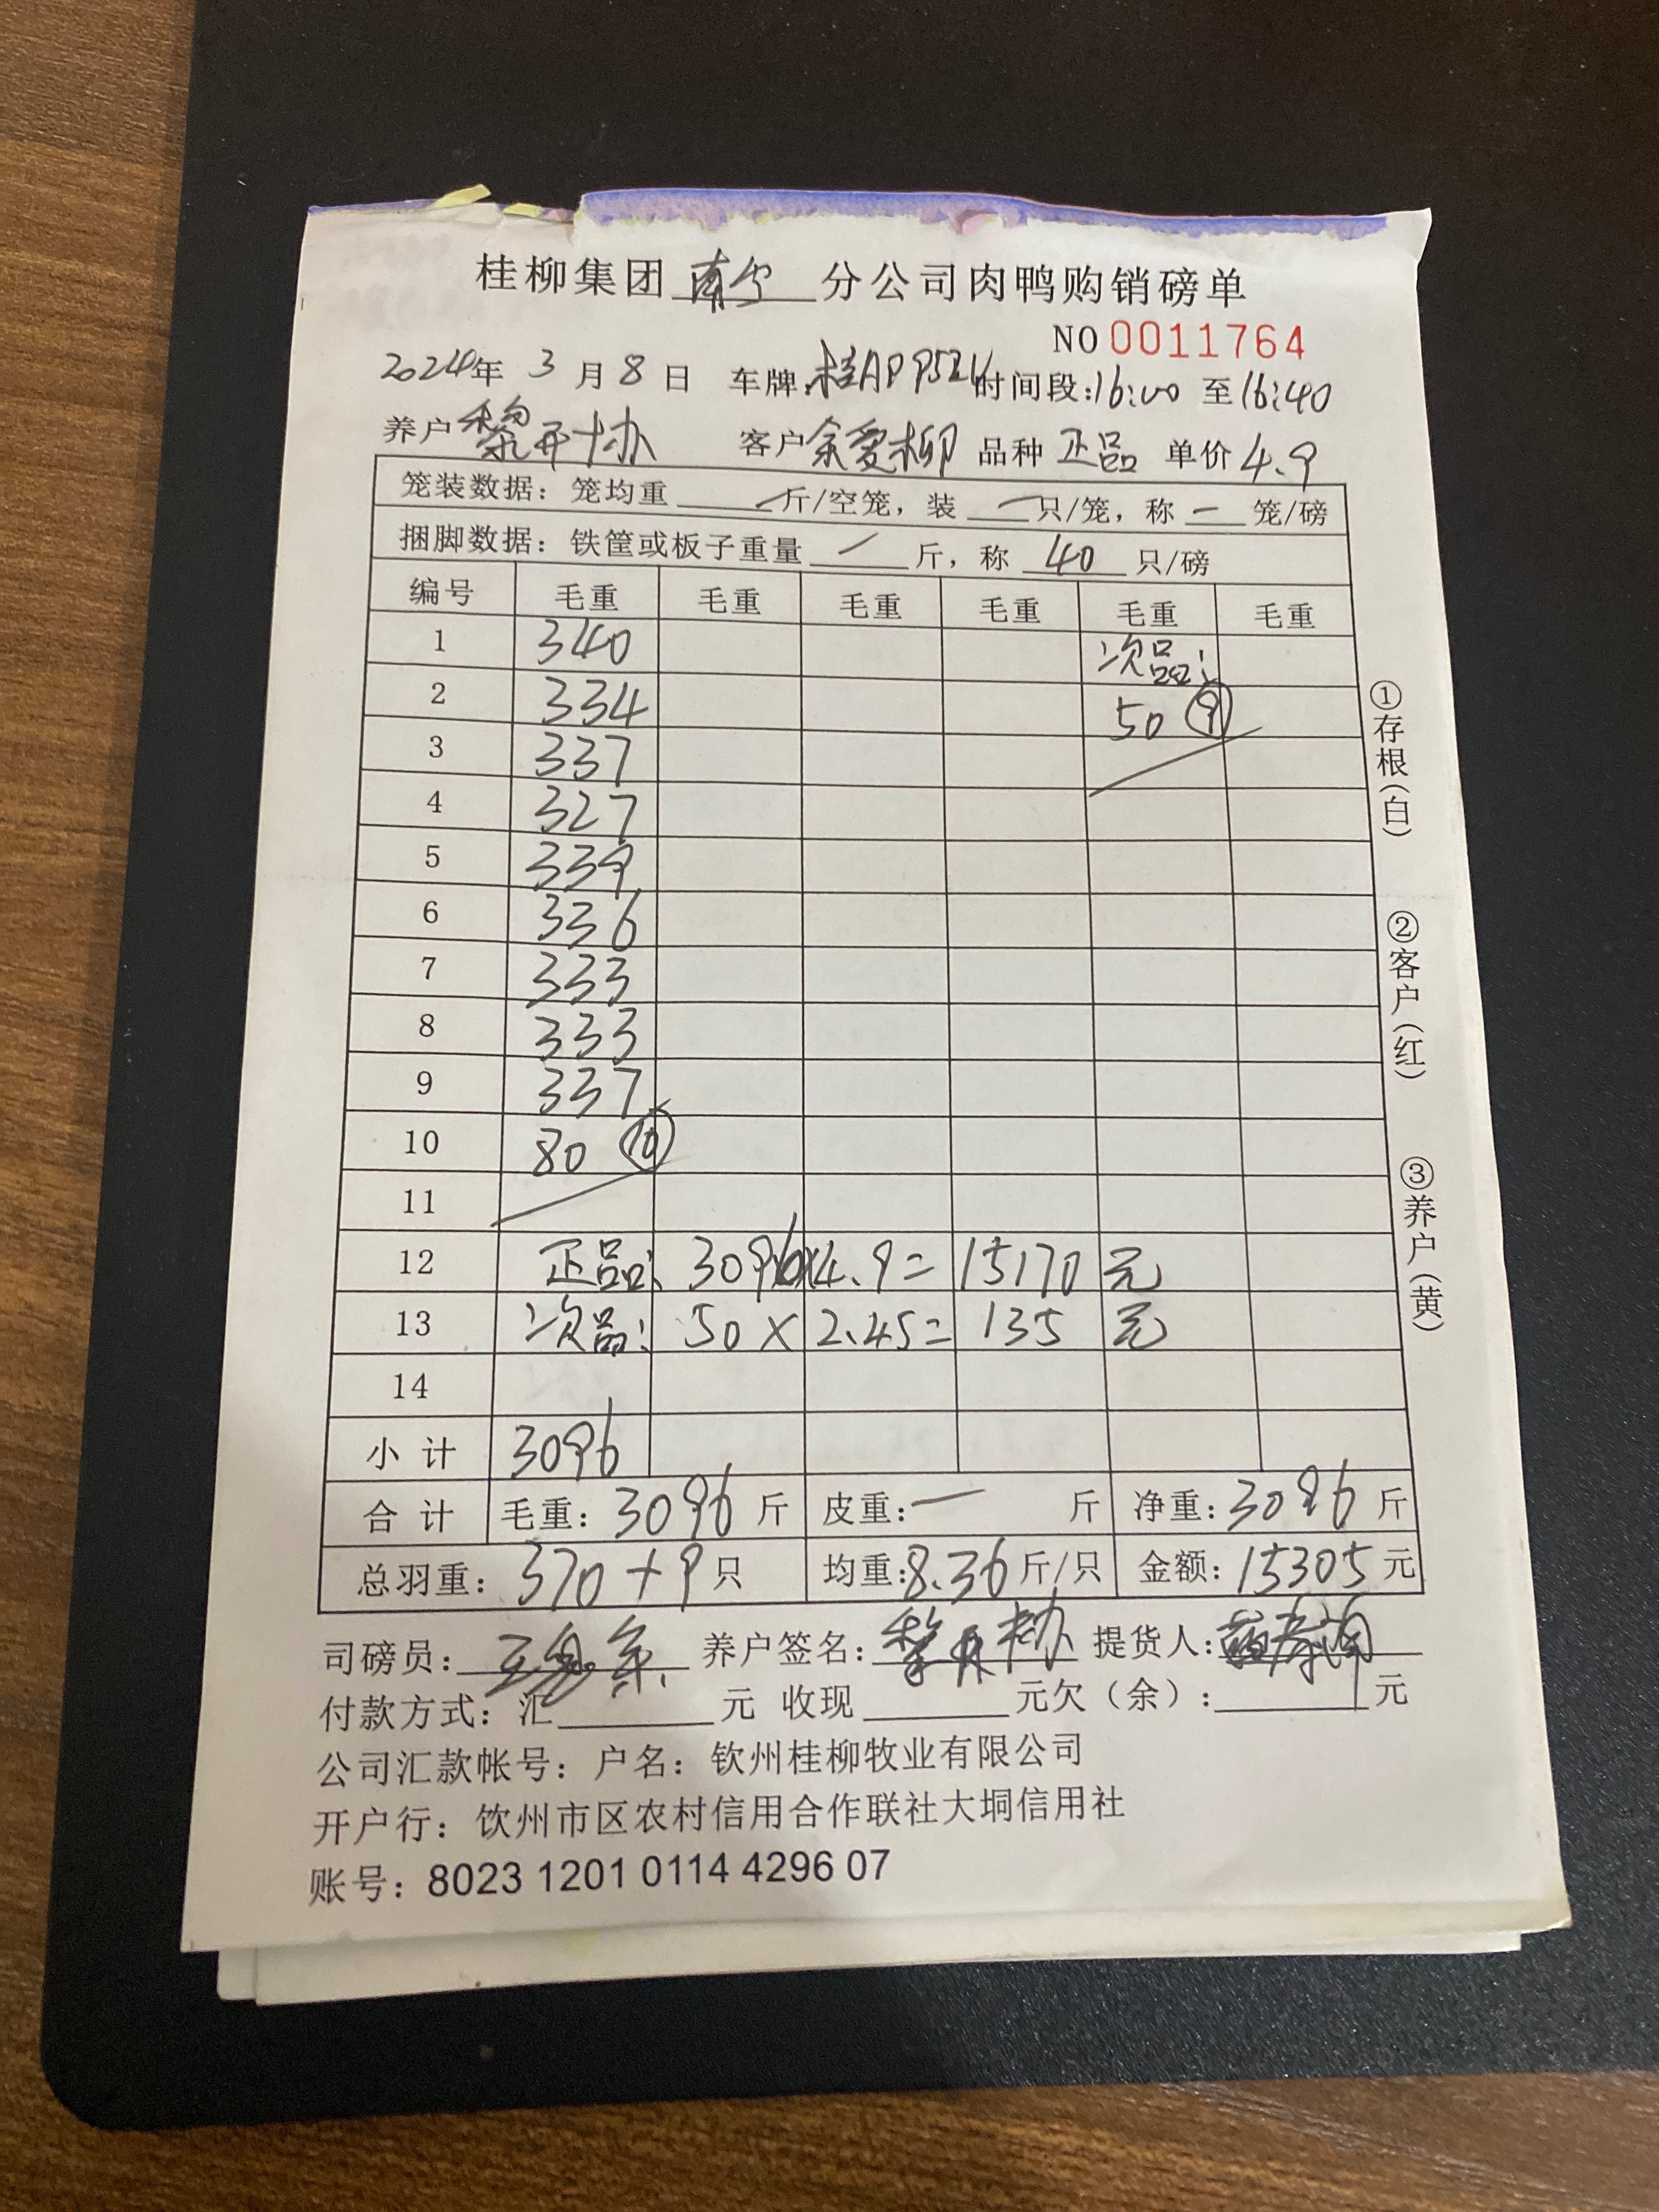 桂柳集团 南宁 分公司肉鸭购销磅单
NO 0011764
2024年 3月8日 车牌: 时间段:16:00 至16:40
养户 黎 客户 余爱柳 品种 正品 单价 4.9
笼装数据: 笼均重 — 斤/空笼, 装 — 只/笼, 称 — 笼/磅
捆脚数据: 铁筐或板子重量 / 斤, 称 40 只/磅
编号 毛重 毛重 毛重 毛重 毛重 毛重
1 340 次品:
2 334 50 ⑨
3 337
4 327
5 339
6 336
7 333
8 333
9 337
10 80 ⑩
11
12 正品: 3096×4.9= 15170 元
13 次品: 50 × 2.45= 135 元
14
小计 3096
合计 毛重: 3096 斤 皮重: — 斤 净重: 3096 斤
总羽重: 370 + 9 只 均重: 8.36 斤/只 金额: 15305 元
司磅员: 养户签名: 提货人:
付款方式: 汇 元 收现 元欠(余): 元
公司汇款帐号: 户名: 钦州桂柳牧业有限公司
开户行: 饮州市区农村信用合作联社大垌信用社
账号: 8023 1201 0114 4296 07
①存根(白)
②客户(红)
③养户(黄)